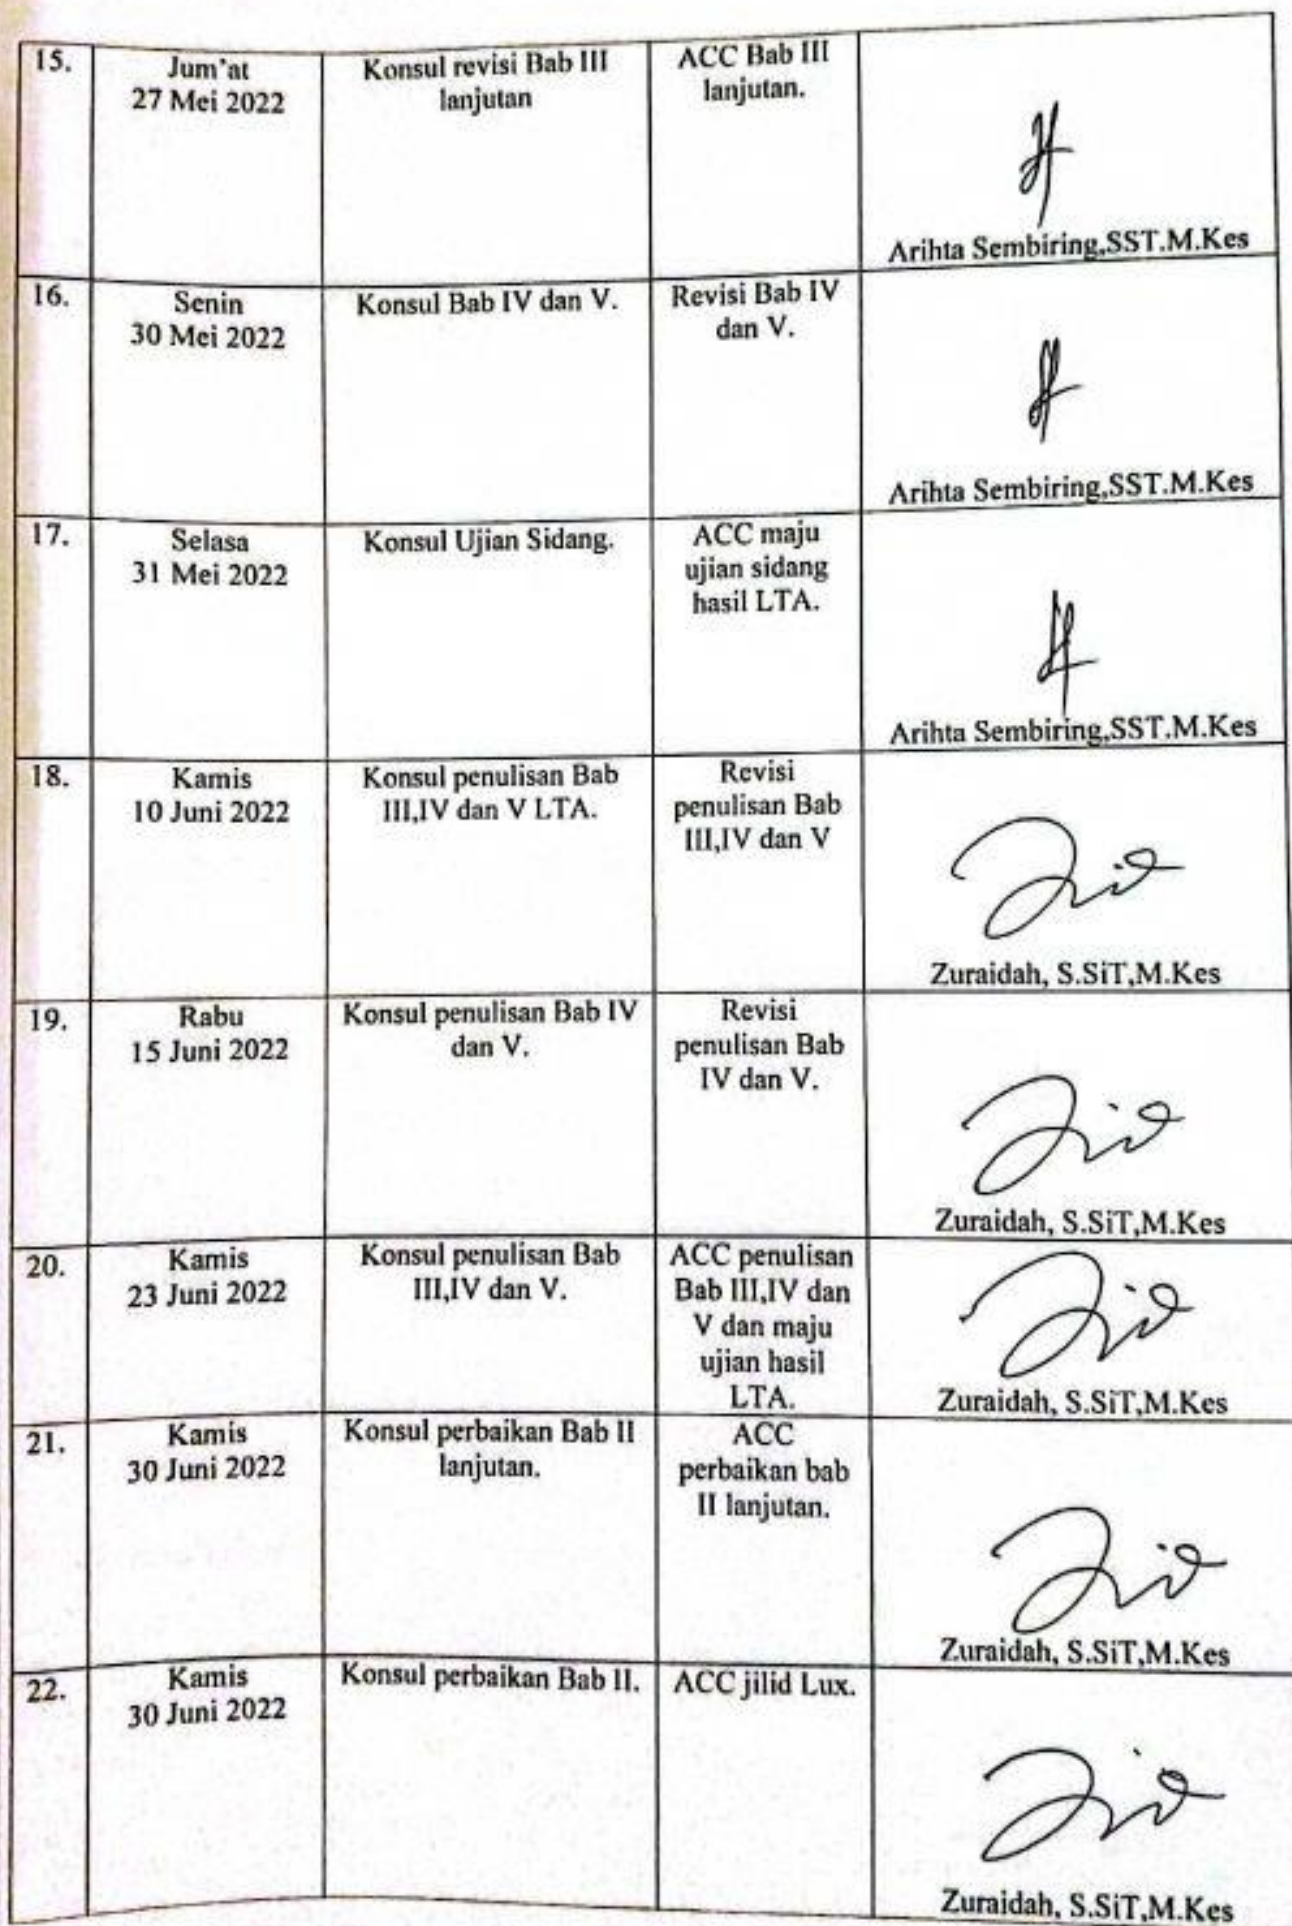 15.
Jum'at
27 Mei 2022
Konsul revisi Bab III
lanjutan
ACC Bab III
lanjutan.
Arihta Sembiring,SST.M.Kes
16.
Senin
30 Mei 2022
Konsul Bab IV dan V.
Revisi Bab IV
dan V.
Arihta Sembiring,SST.M.Kes
17.
Selasa
31 Mei 2022
Konsul Ujian Sidang.
ACC maju
ujian sidang
hasil LTA.
Arihta Sembiring,SST.M.Kes
18.
Kamis
10 Juni 2022
Konsul penulisan Bab
III,IV dan V LTA.
Revisi
penulisan Bab
III,IV dan V
Zuraidah, S.SiT,M.Kes
19.
Rabu
15 Juni 2022
Konsul penulisan Bab IV
dan V.
Revisi
penulisan Bab
IV dan V.
Zuraidah, S.SiT,M.Kes
20.
Kamis
23 Juni 2022
Konsul penulisan Bab
III,IV dan V.
ACC penulisan
Bab III,IV dan
V dan maju
ujian hasil
LTA.
Zuraidah, S.SiT,M.Kes
21.
Kamis
30 Juni 2022
Konsul perbaikan Bab II
lanjutan.
ACC
perbaikan bab
II lanjutan.
Zuraidah, S.SiT,M.Kes
22.
Kamis
30 Juni 2022
Konsul perbaikan Bab II.
ACC jilid Lux.
Zuraidah, S.SiT,M.Kes